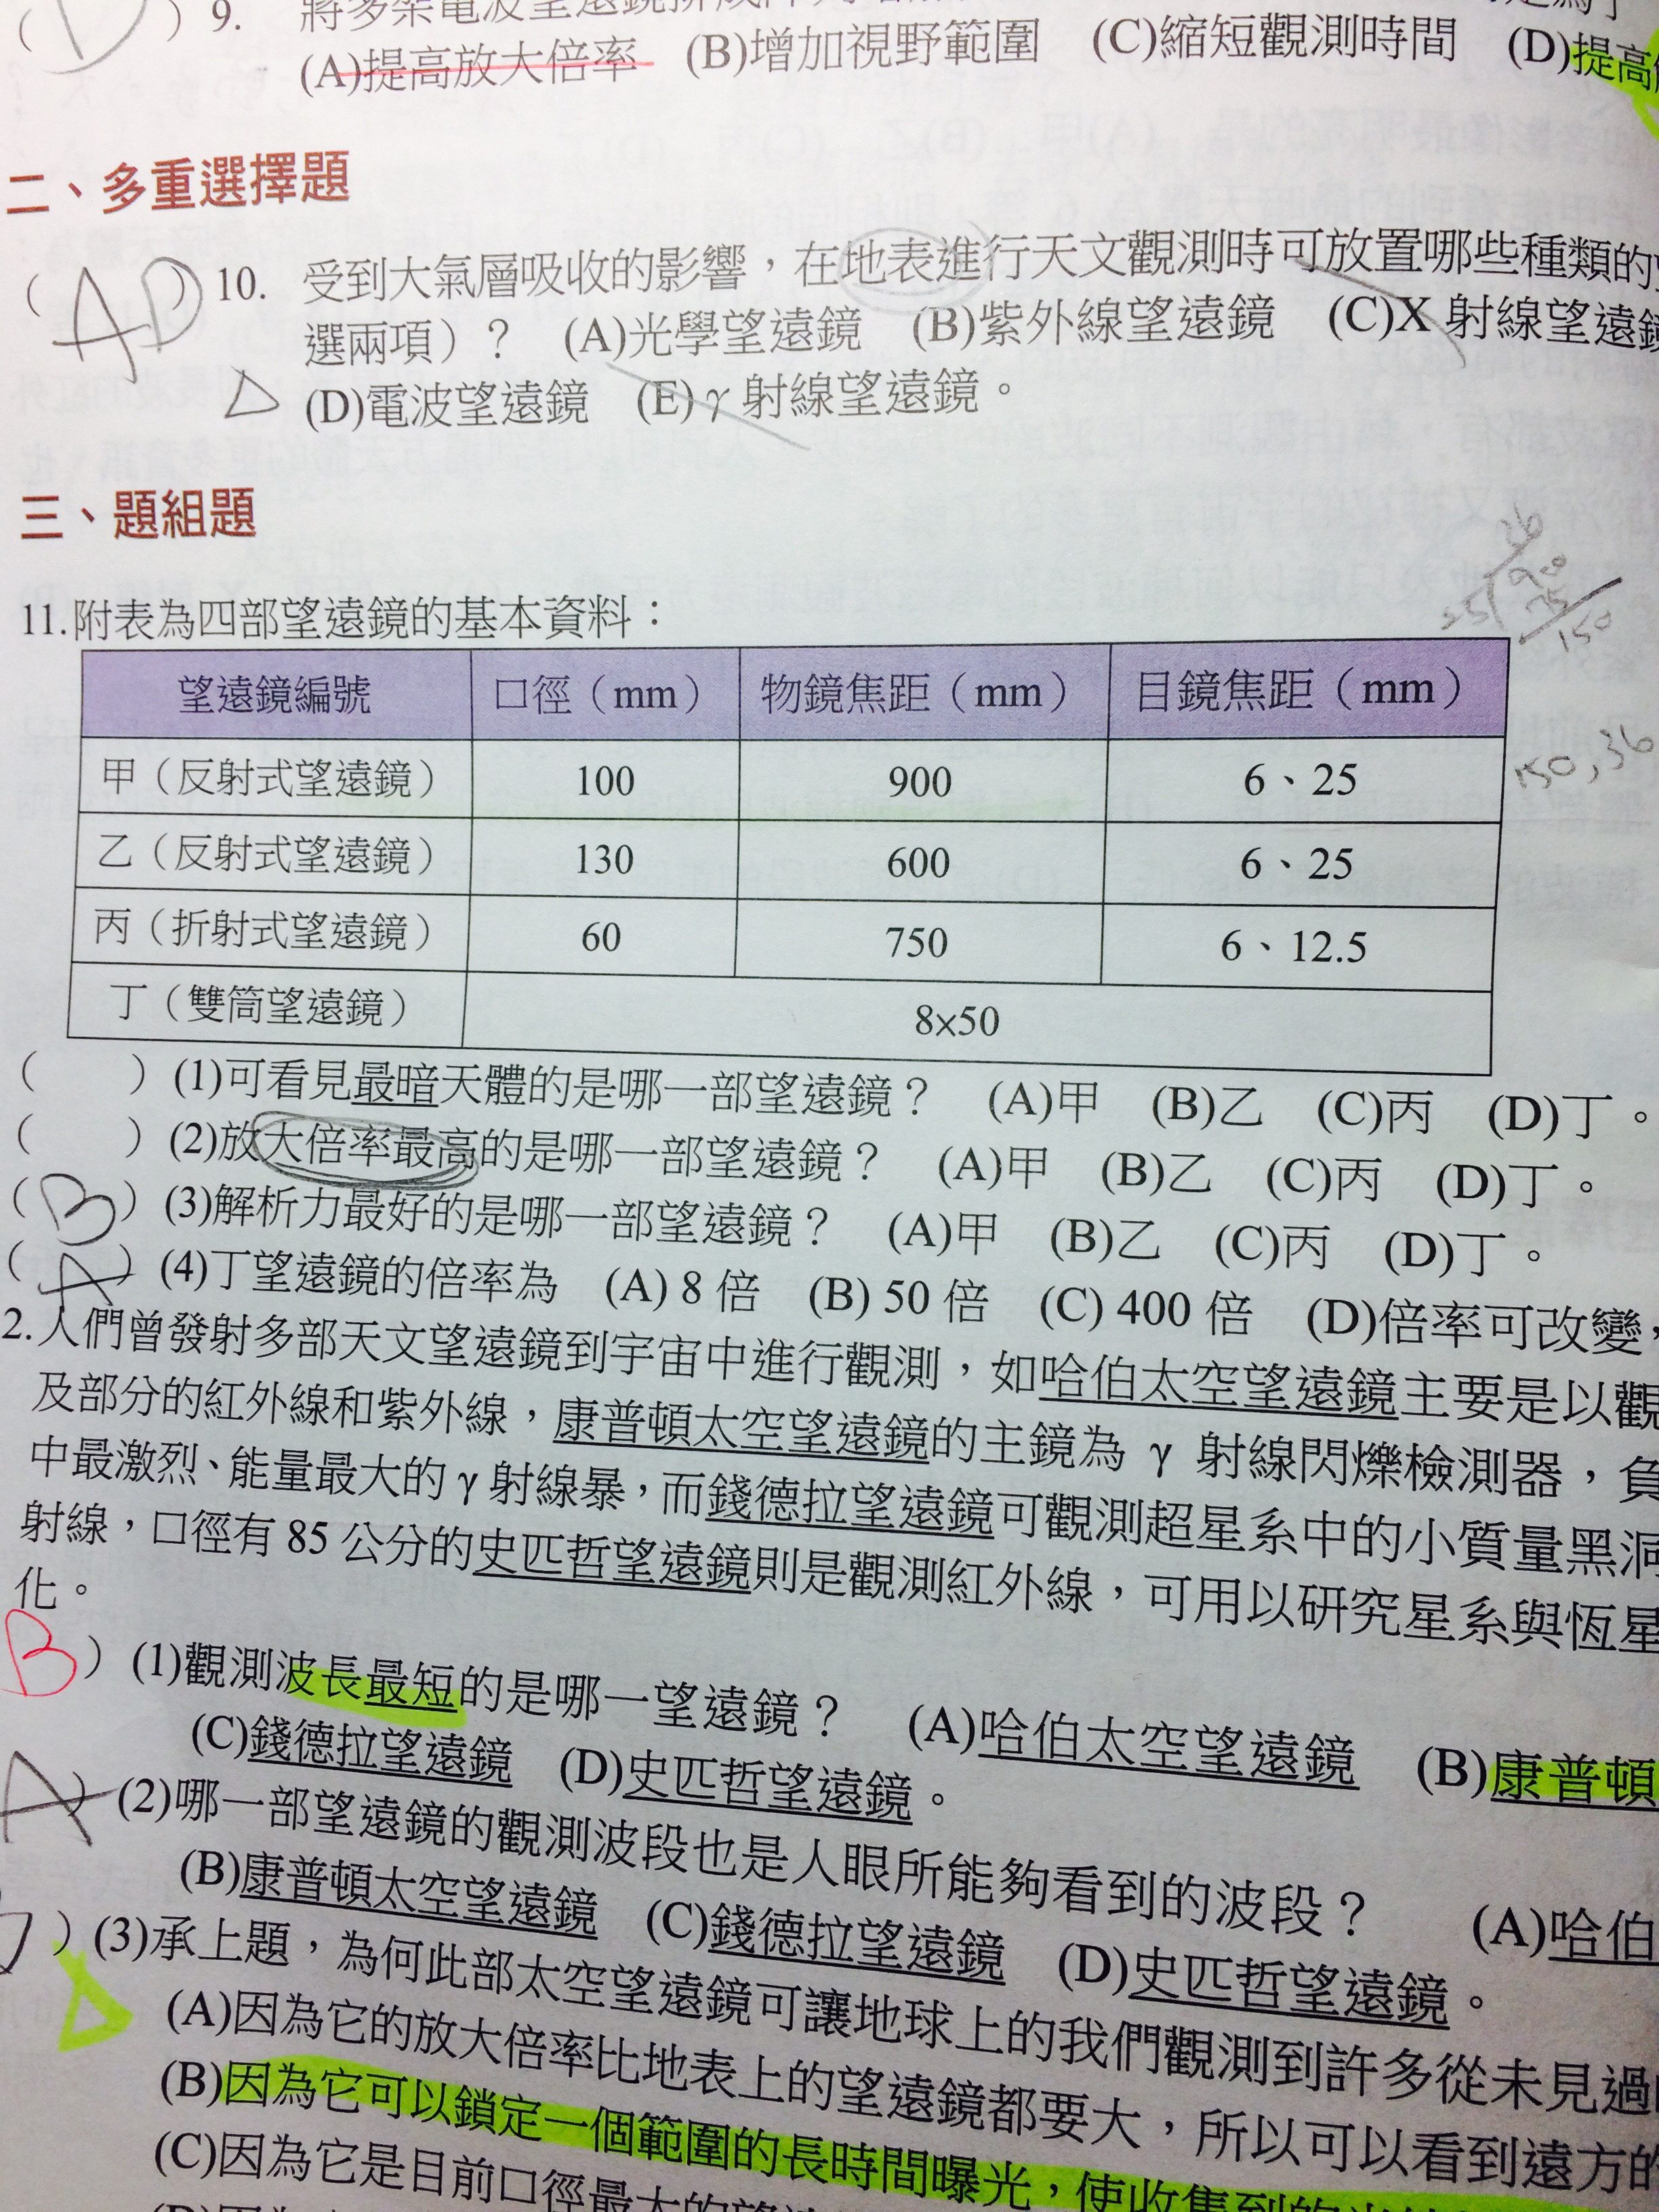 ( D ) 9. 將多架電波望遠鏡排成陣列
(A)提高放大倍率 (B)增加視野範圍 (C)縮短觀測時間 (D)提高
二、多重選擇題
( AD ) 10. 受到大氣層吸收的影響，在地表進行天文觀測時可放置哪些種類的
選兩項）？ (A)光學望遠鏡 (B)紫外線望遠鏡 (C)X 射線望遠鏡
(D)電波望遠鏡 (E)γ 射線望遠鏡。
三、題組題
11.附表為四部望遠鏡的基本資料：
望遠鏡編號 口徑（mm） 物鏡焦距（mm） 目鏡焦距（mm）
甲（反射式望遠鏡） 100 900 6、25
150,36
乙（反射式望遠鏡） 130 600 6、25
丙（折射式望遠鏡） 60 750 6、12.5
丁（雙筒望遠鏡） 8×50
( ) (1)可看見最暗天體的是哪一部望遠鏡？ (A)甲 (B)乙 (C)丙 (D)丁。
( ) (2)放大倍率最高的是哪一部望遠鏡？ (A)甲 (B)乙 (C)丙 (D)丁。
( B ) (3)解析力最好的是哪一部望遠鏡？ (A)甲 (B)乙 (C)丙 (D)丁。
( A ) (4)丁望遠鏡的倍率為 (A) 8 倍 (B) 50 倍 (C) 400 倍 (D)倍率可改變，
2.人們曾發射多部天文望遠鏡到宇宙中進行觀測，如哈伯太空望遠鏡主要是以觀
及部分的紅外線和紫外線，康普頓太空望遠鏡的主鏡為 γ 射線閃爍檢測器，負
中最激烈、能量最大的 γ 射線暴，而錢德拉望遠鏡可觀測超星系中的小質量黑洞
射線，口徑有 85 公分的史匹哲望遠鏡則是觀測紅外線，可用以研究星系與恆星
化。
B ) (1)觀測波長最短的是哪一望遠鏡？ (A)哈伯太空望遠鏡 (B)康普頓
(C)錢德拉望遠鏡 (D)史匹哲望遠鏡。
A ) (2)哪一部望遠鏡的觀測波段也是人眼所能夠看到的波段？ (A)哈伯
(B)康普頓太空望遠鏡 (C)錢德拉望遠鏡 (D)史匹哲望遠鏡。
) (3)承上題，為何此部太空望遠鏡可讓地球上的我們觀測到許多從未見過
(A)因為它的放大倍率比地表上的望遠鏡都要大，所以可以看到遠方的
(B)因為它可以鎖定一個範圍的長時間曝光，使收集到的
(C)因為它是目前口徑最大的望